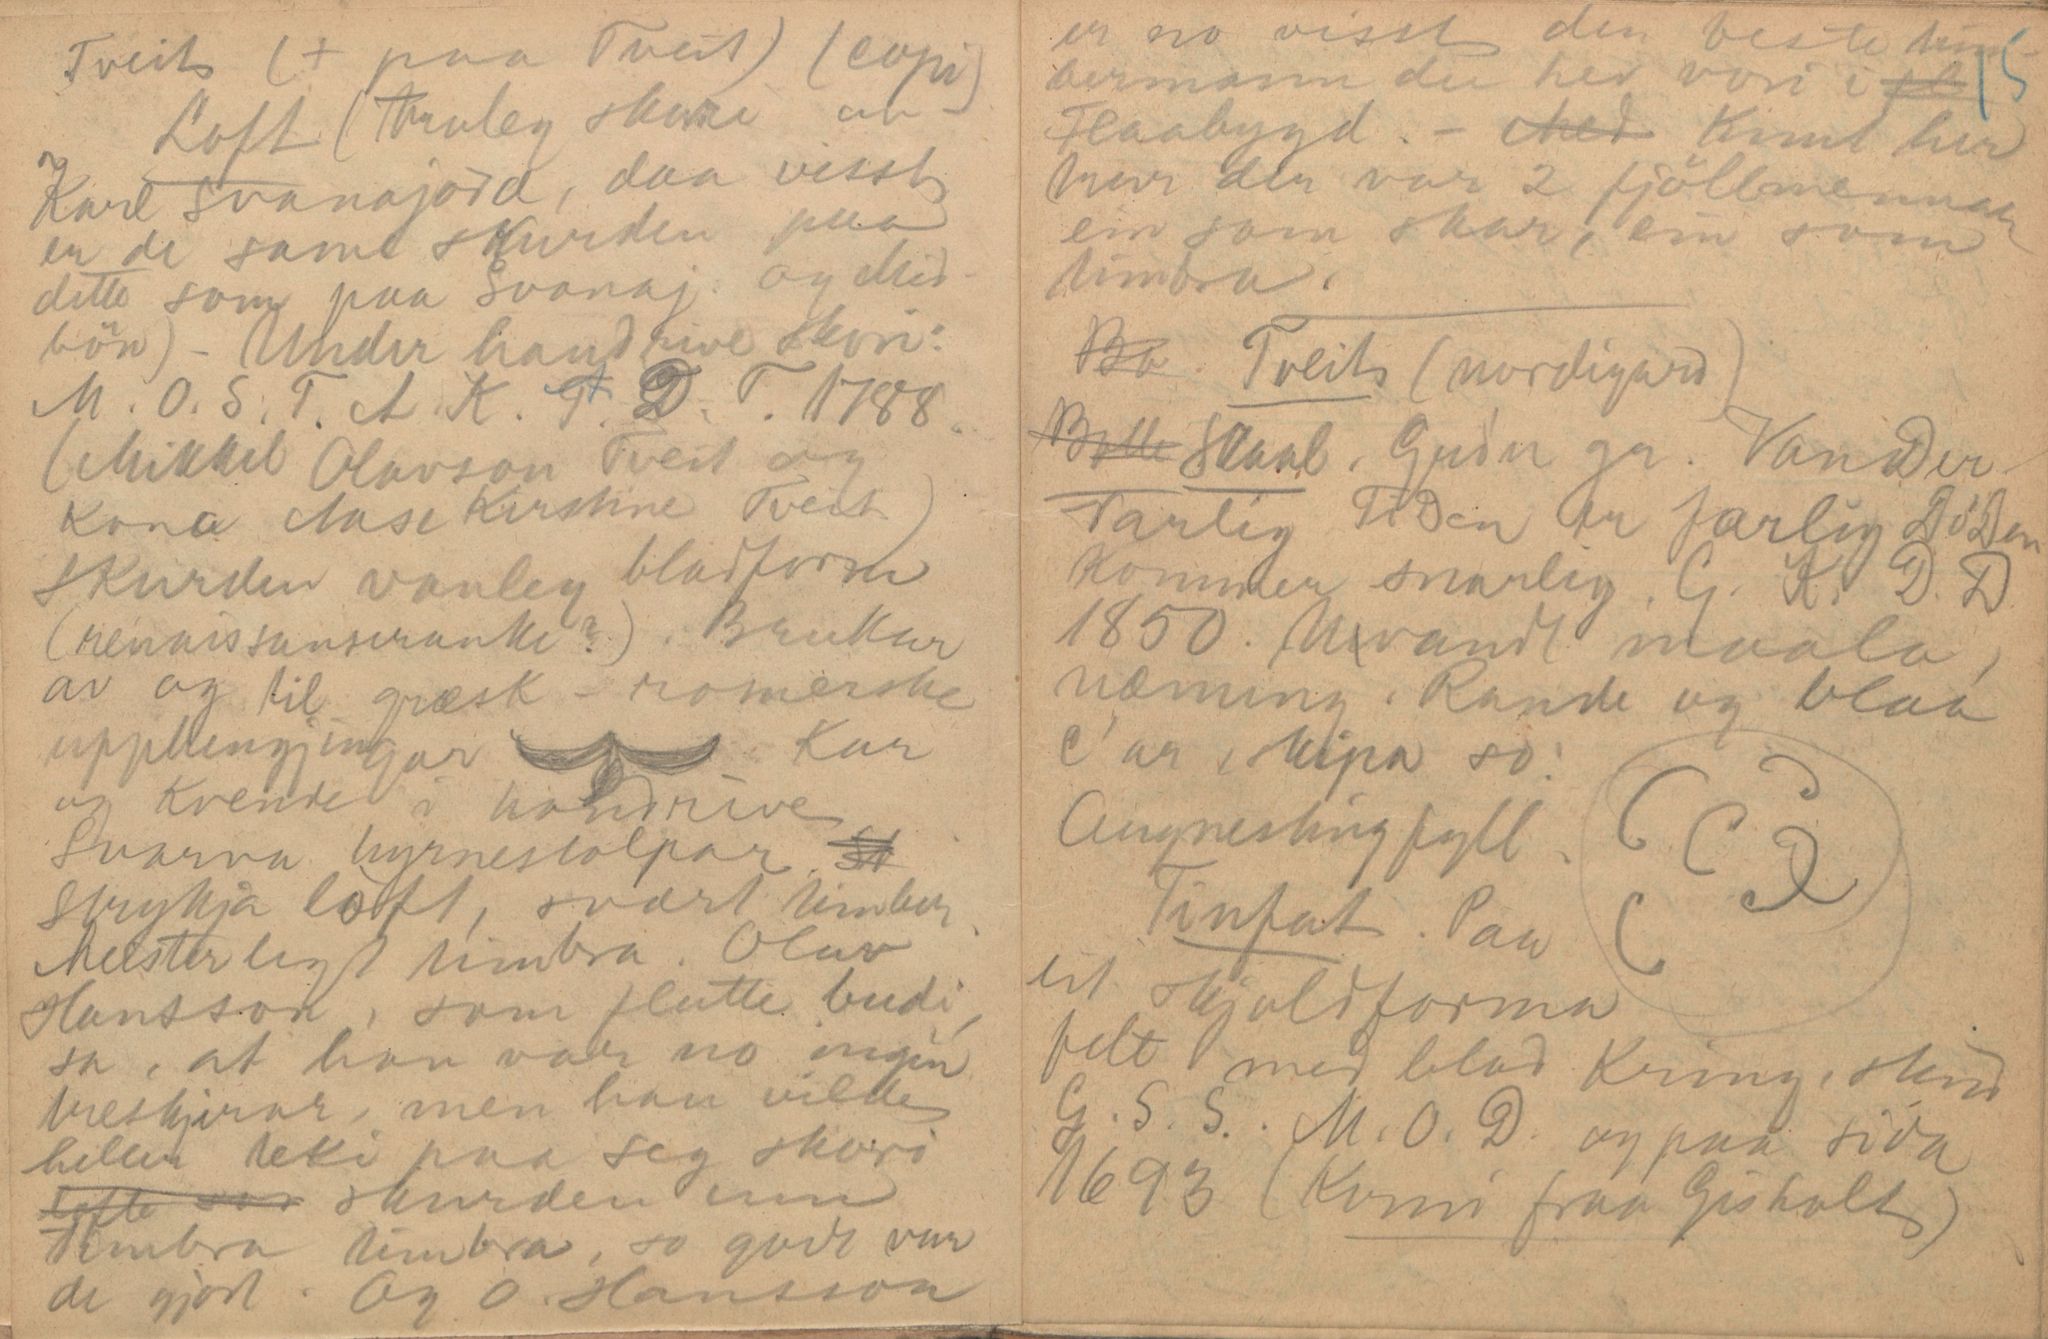 Tveit (+ paa Tveit) (copi)
Loft (truleg skore av
Karl Svanajord, daa visst
er de same skurden paa
dette som paa Svanaj. og Mid-
bön) - Under handrive skori:
M. O. S. T. A. K. T. D. T. 1788.
(Mikkel Olavson Tveit og
Kona Aase Kirstine Tveit)
Skurden vanleg bladform
(renaissanseranke?). Brukar
av og til græsk-romerske
upphengjingar. Kar
og Kvende i handrive
Svarva hyrnestolpar. St
Strykja loft, svært timber.
Meisterlegt timbra. Olav
Hansson, som flutte budi,
sa, at han var no ingin
treskjerar, men han vilde
heller teki paa seg skori
lofte som skurden enn
Timbra timbra, so godt var
de gjort. Og O. Hansson
15
er no visst den beste tim-
bermann der hev vori i fl
Flaabygd. - Med Kimt her
trur der var 2 fjöllmennar
ein som skar, ein som
timbra.
Bo Tveit (nordigard)
Bolle Skaal. Grön gr. Vandrer
varlig Tiden er farlig Döden
Kommer snarlig. G. K. D. D
1850. U vandt maala,
næming. Rande og blaa
c'ar, skipa so:
Augnestingfyll.
Tinfat. Paa
eit skjoldforma
felt med blad Kring, stend
G. S. S. M. O. D. og paa sida
1693 (Komi fraa Gisholt)